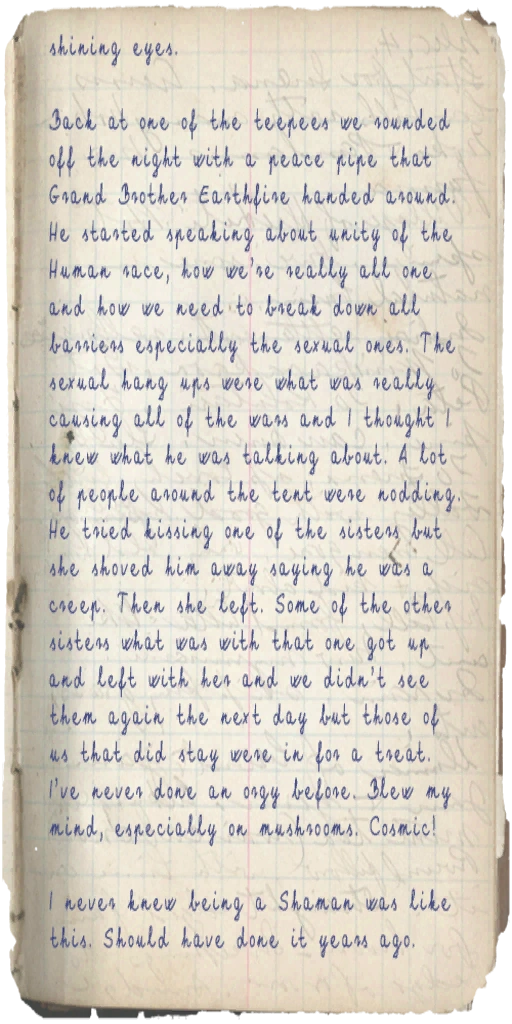 shining eyes.
Back at one of the teepees we rounded
off the night with a peace pipe that
Grand Brother Earthfire handed around.
He started speaking about unity of the
Human race, how we're really all one
and how we need to break down all
barriers especially the sexual ones. The
sexual hang ups were what was really
causing all of the wars and I thought I
knew what he was talking about. A lot
of people around the tent were nodding.
He tried kissing one of the sisters but
she shoved him away saying he was a
creep. Then she left. Some of the other
sisters what was with that one got up
and left with her and we didn't see
them again the next day but those of
us that did stay were in for a treat.
I've never done an orgy before. Blew my
mind, especially on mushrooms. Cosmic!
I never knew being a Shaman was like
this. Should have done it years ago.